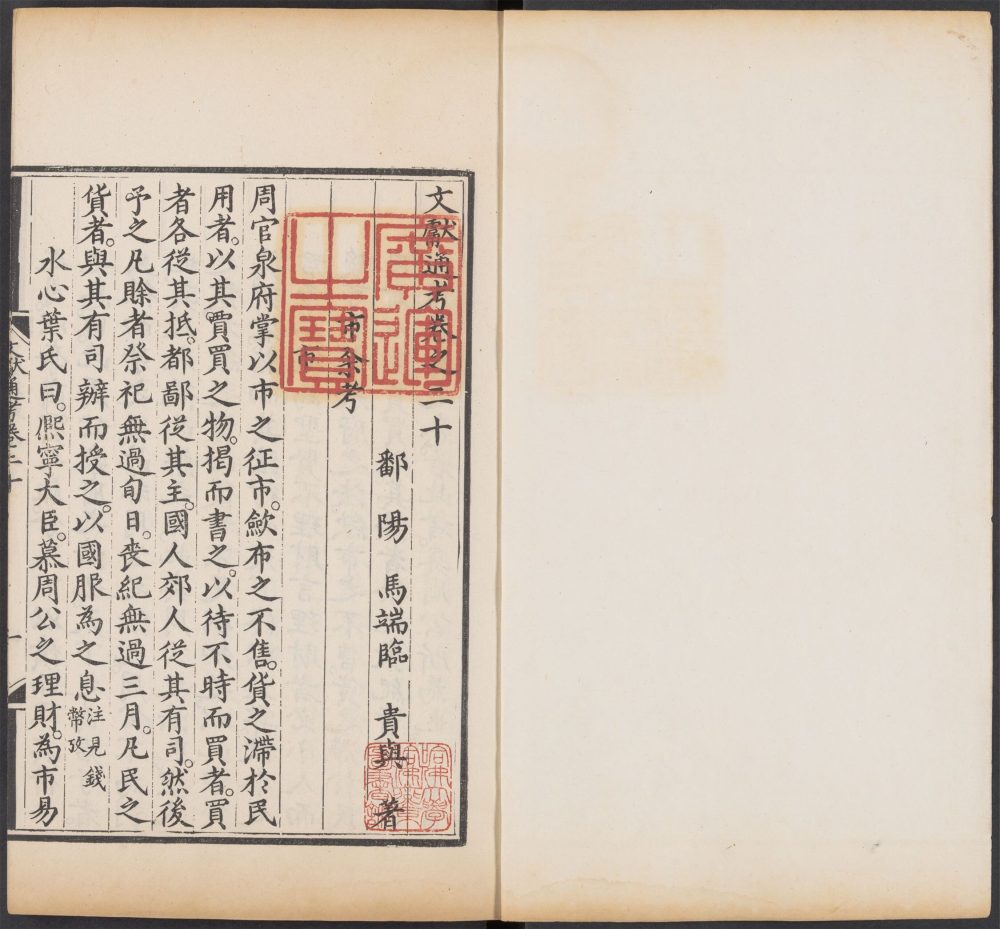 文獻通考卷之二十
鄱陽馬端臨貴與著
市糴考
市
周官泉府掌以市之征市歛布之不售貨之滯於民
用者。以其賈買之物。揭而書之。以待不時而買者。買
者各從其抵。都鄙從其主。國人郊人從其有司。然後
予之凡賒者祭祀無過旬日。喪紀無過三月。凡民之
貨者。與其有司辨而授之。以國服為之息注見錢幣攷
水心葉氏曰。熙寧大臣。慕周公之理財。為市易
文獻通考卷二十
一
廣運之寶